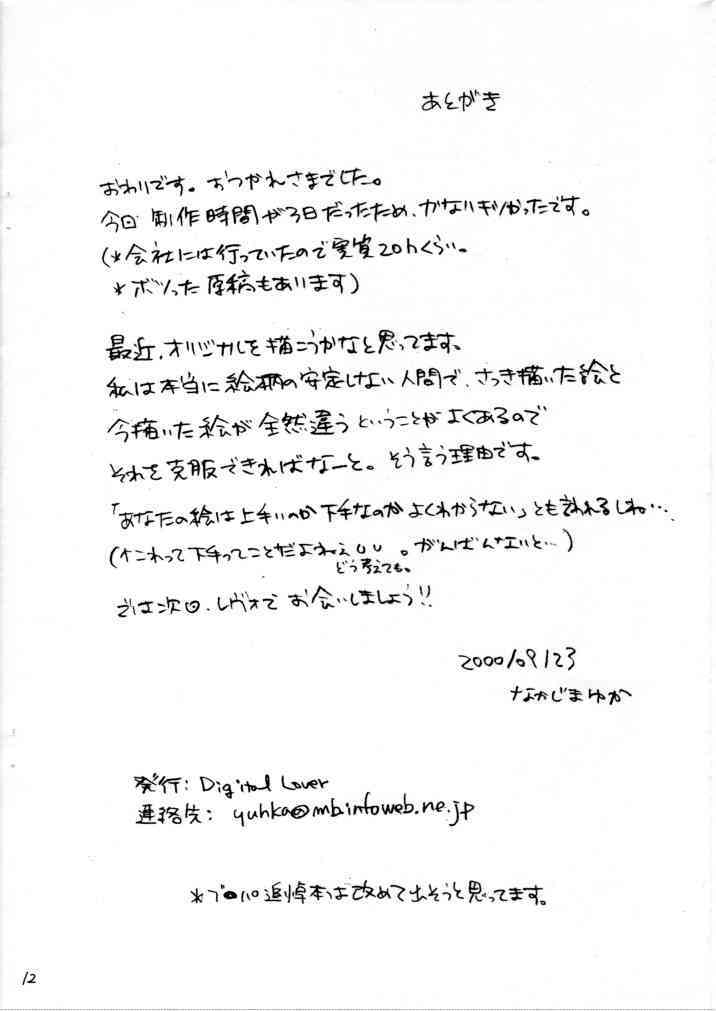 あとがき
おわりです。おつかれさまでした。
今回 制作時間が3日だったため、かなりギリかったです。
(*会社には行っていたので実質20hくらい。
*ボツった原稿もあります)
最近、オリジナルを描こうかなと思ってます。
私は本当に絵柄の安定しない人間で、さっき描いた絵と
今描いた絵が全然違うということがよくあるので
それを克服できればなーと。そう言う理由です。
「あなたの絵は上手いのか下手なのかよくわからない」とも言われるしね…
(それって下手ってことだよねぇUU。がんばんないと…)
どう考えても。
では次回、レヴォでお会いしましょう!!
2000/09/23
なかじまゆか
発行: Digital Lover
連絡先: yuhka@mb.infoweb.ne.jp
*プロパ追悼本は改めて出そうと思ってます。
12